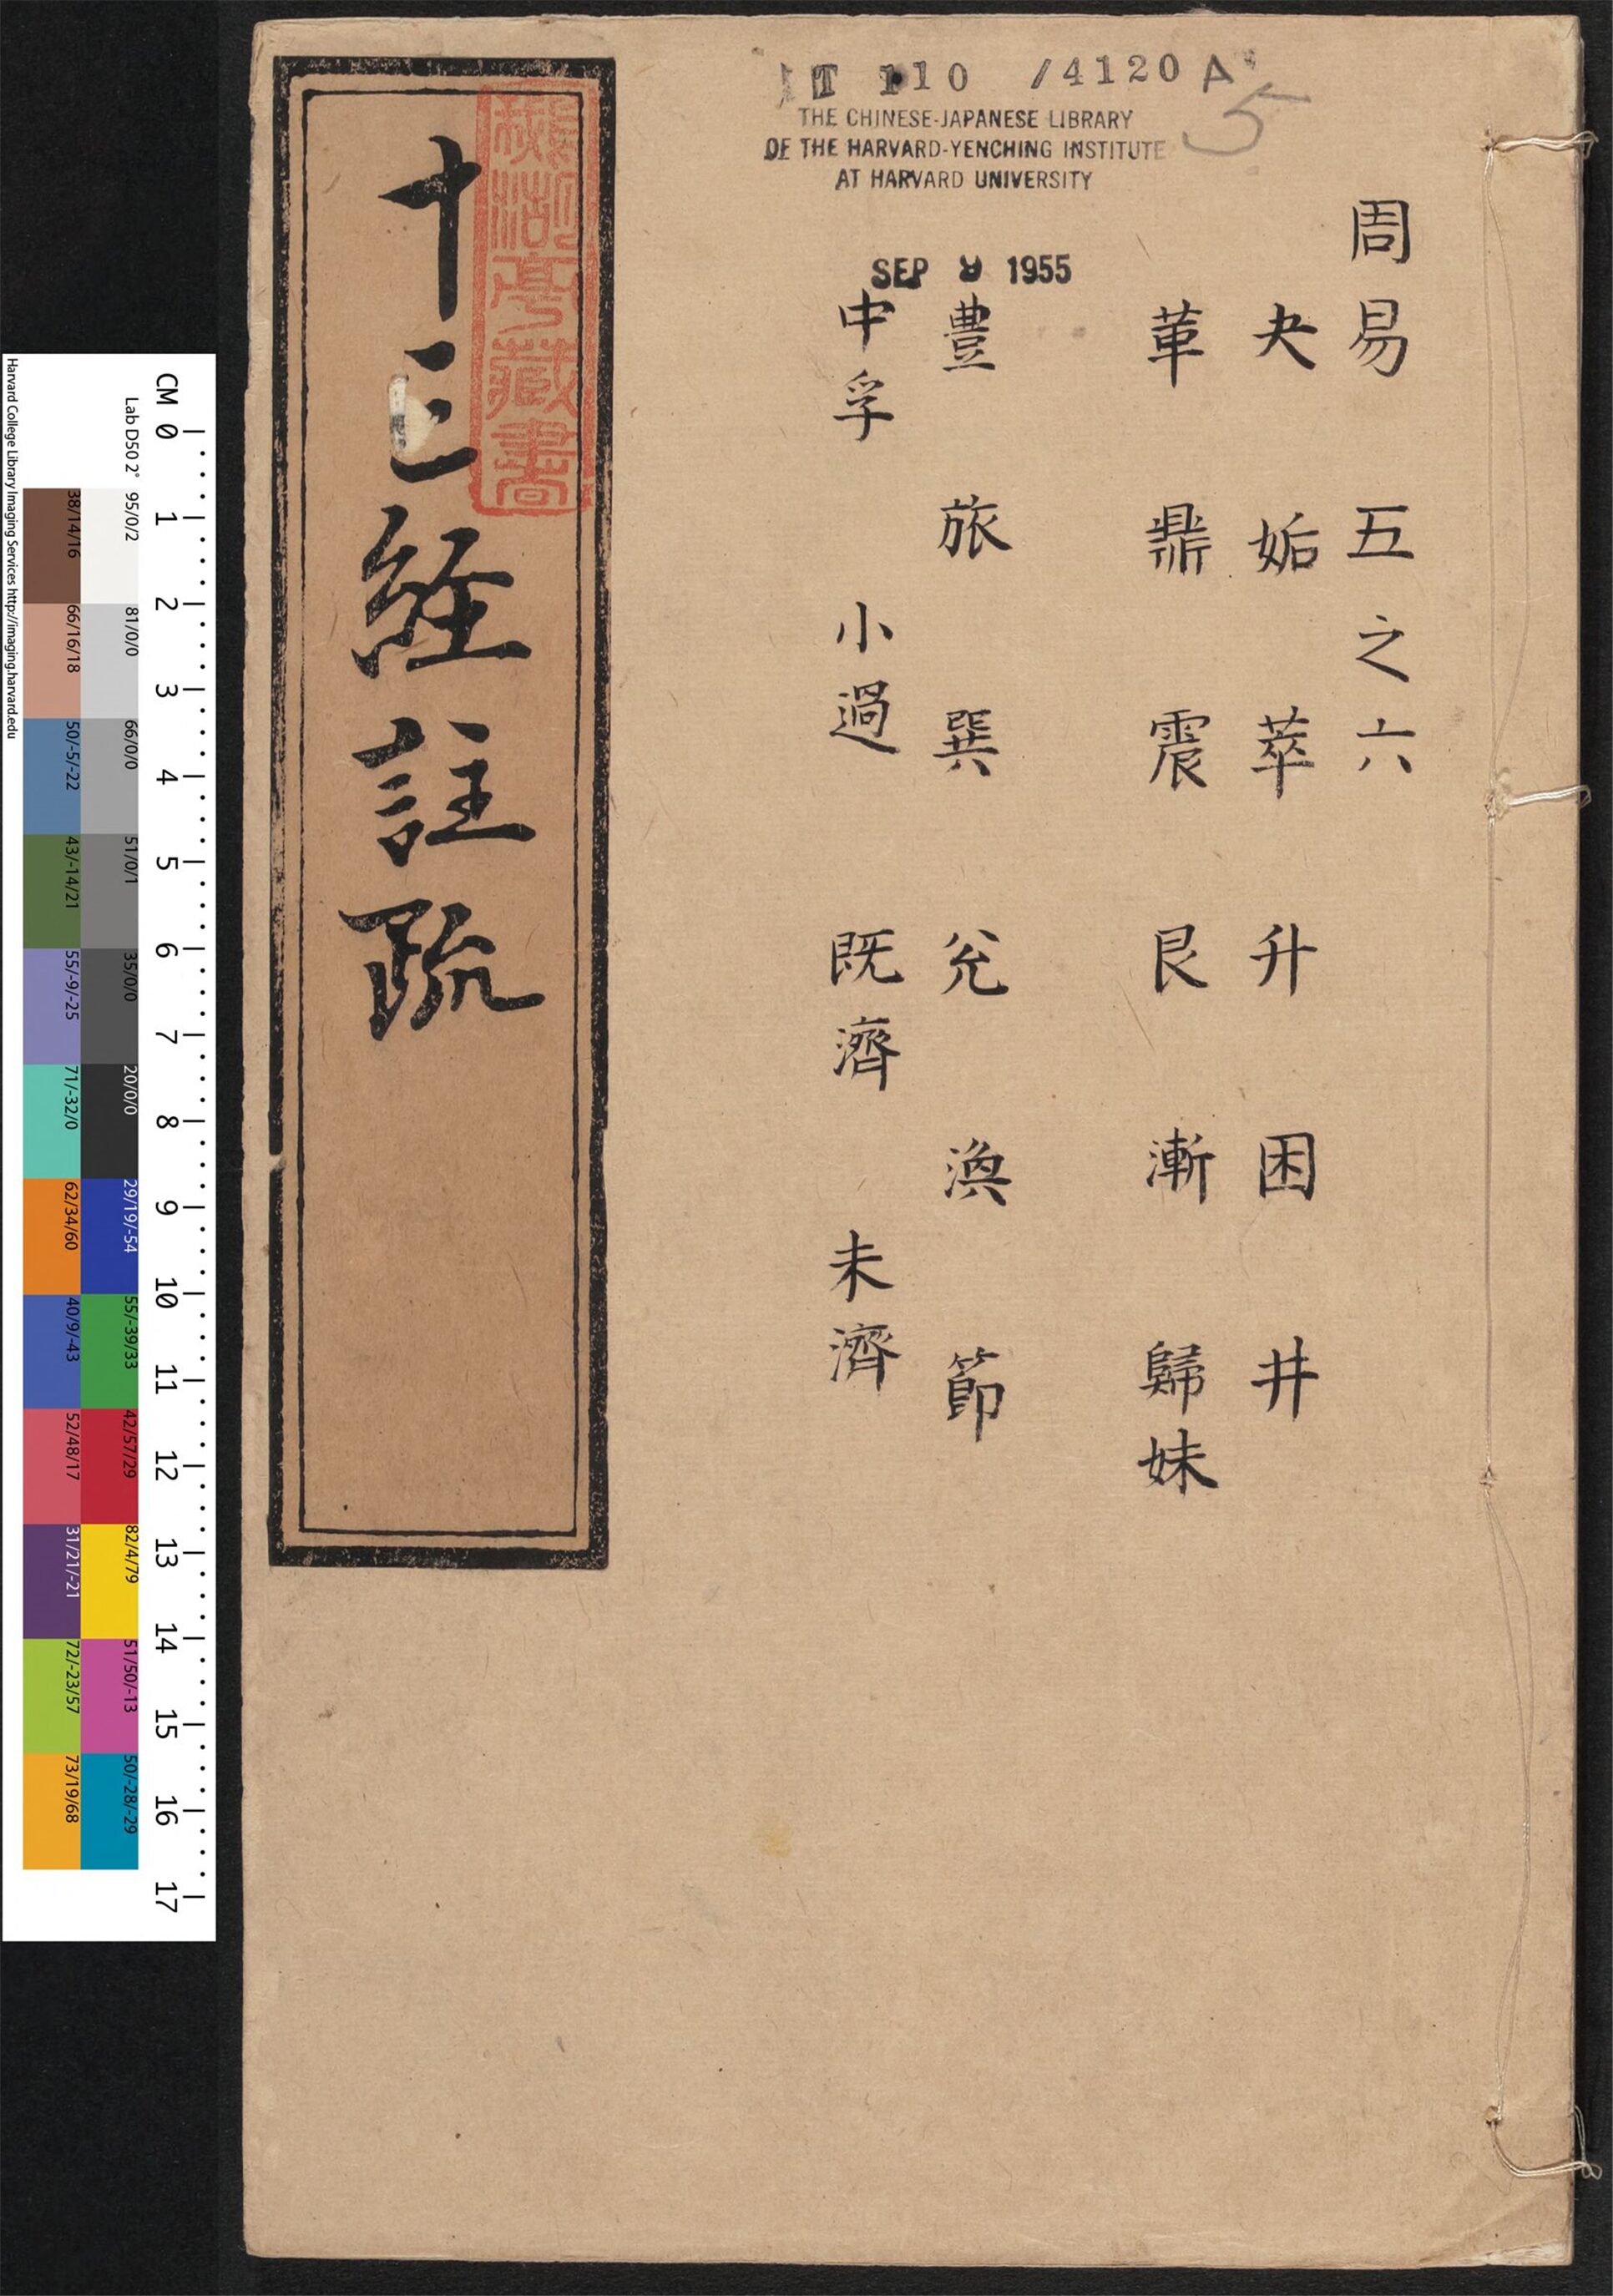 T 110 /4120 A
5
THE CHINESE-JAPANESE LIBRARY
OF THE HARVARD-YENCHING INSTITUTE
AT HARVARD UNIVERSITY
SEP 9 1955
周易 五之六
夬 姤 萃 升 困 井
革 鼎 震 艮 漸 歸妹
豊 旅 巽 兊 渙 節
中孚 小過 既濟 未濟
十三経註疏
亭藏書
CM 0 1 2 3 4 5 6 7 8 9 10 11 12 13 14 15 16 17
Lab D50 2°
95/0/2
81/0/0
66/0/0
51/0/1
35/0/0
20/0/0
29/19/-54
55/-39/33
42/57/29
82/4/79
51/50/-13
50/-28/-29
38/14/16
66/16/18
50/-5/-22
43/-14/21
55/-9/-25
71/-32/0
62/34/60
40/9/-43
52/48/17
31/21/-21
72/-23/57
73/19/68
Harvard College Library Imaging Services http://imaging.harvard.edu